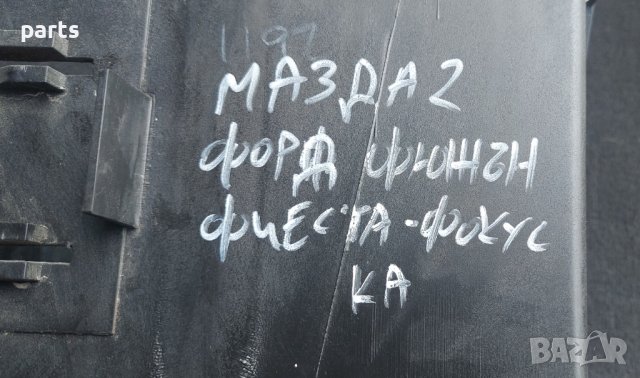 parts
1197
МАЗДА 2
ФОРД ФЮЖЪН
ФИЕСТА-ФОКУС
КА
BAZAR